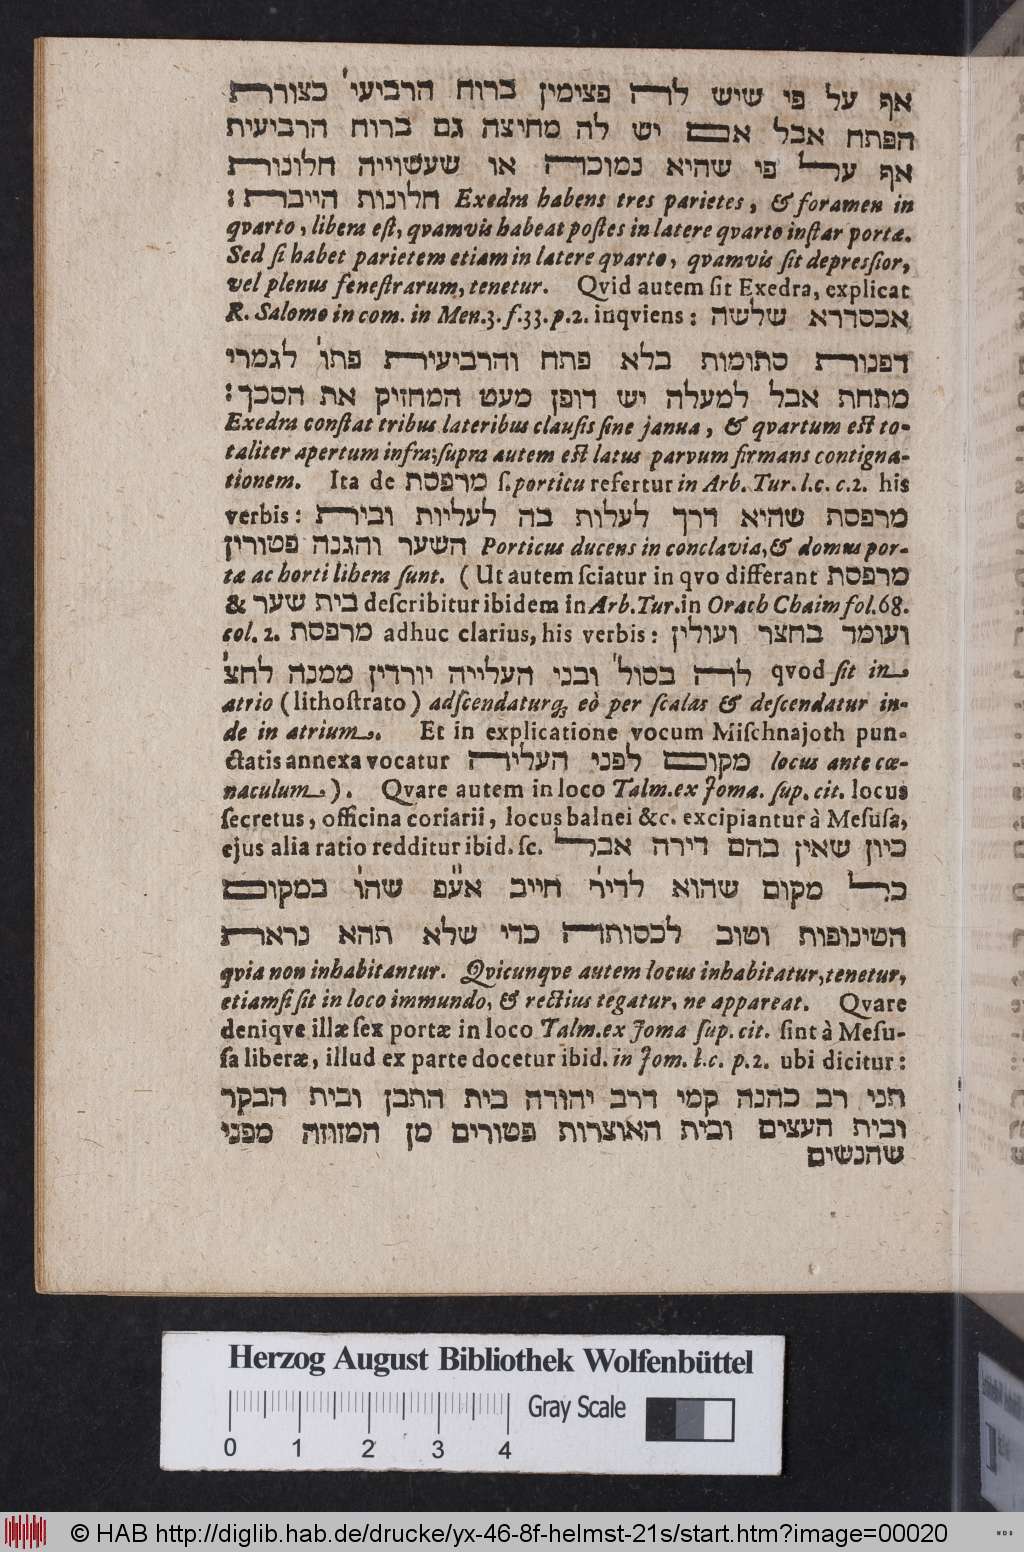 אף על פי שיש לה פצימין ברוח הרביעי' כצורת
הפתח אבל אם יש לה מחיצה גם ברוח הרביעית
אף על פי שהיא נמוכה או שעשוייה חלונות
חלונות הייבת : Exedra habens tres parietes, & foramen in
qvarto, libera eſt, qvamvis habeat poſtes in latere qvarto inſtar portæ.
Sed ſi habet parietem etiam in latere qvarto, qvamvis ſit depresſior,
vel plenus feneſtrarum, tenetur. Qvid autem ſit Exedra, explicat
R. Salomo in com. in Men. 3. f. 33. p. 2. inqviens: אכסדרא שלשה
דפנות סתומות בלא פתח והרביעית פתו' לגמרי
מתחת אבל למעלה יש דופן מעט המחזיק את הסכך :
Exedra conſtat tribus lateribus clauſis ſine janua, & qvartum eſt to-
taliter apertum infra; ſupra autem eſt latus parvum firmans contigna-
tionem. Ita de מרפסת ſ. porticu refertur in Arb. Tur. l. c. c. 2. his
verbis: מרפסת שהיא דרך לעלות בה לעליות ובית
השער והגנה פטורין Porticus ducens in conclavia, & domus por-
tæ ac horti libera ſunt. (Ut autem ſciatur in qvo differant מרפסת
& בית שער deſcribitur ibidem in Arb. Tur. in Orach Chaim fol. 68.
col. 2. מרפסת adhuc clarius, his verbis: ועומד בחצר ועולין
לה בסול' ובני העלייה יורדין ממנה לחצ' qvod ſit in
atrio (lithoſtrato) adſcendaturq; eò per ſcalas & deſcendatur in-
de in atrium. Et in explicatione vocum Miſchnajoth pun-
ctatis annexa vocatur מקום לפני העליה locus ante cœ-
naculum). Qvare autem in loco Talm. ex Joma. ſup. cit. locus
ſecretus, officina coriarii, locus balnei &c. excipiantur à Meſuſa,
ejus alia ratio redditur ibid. ſc. כיון שאין בהם דירה אבל
כל מקום שהוא לדיר' חייב אע"פ שהו' במקום
הטינופות וטוב לכסותה כדי שלא תהא נראת
qvia non inhabitantur. Qvicunqve autem locus inhabitatur, tenetur,
etiamſi ſit in loco immundo, & rectius tegatur, ne appareat. Qvare
deniqve illæ ſex portæ in loco Talm. ex Joma ſup. cit. ſint à Meſu-
ſa liberæ, illud ex parte docetur ibid. in Jom. l. c. p. 2. ubi dicitur:
תני רב כהנה קמי דרב יהורה בית התבן ובית הבקר
ובית העצים ובית האוצרות פטורים מן המזוזה מפני
שהנשים
Herzog August Bibliothek Wolfenbüttel
Gray Scale
0 1 2 3 4
© HAB http://diglib.hab.de/drucke/yx-46-8f-helmst-21s/start.htm?image=00020